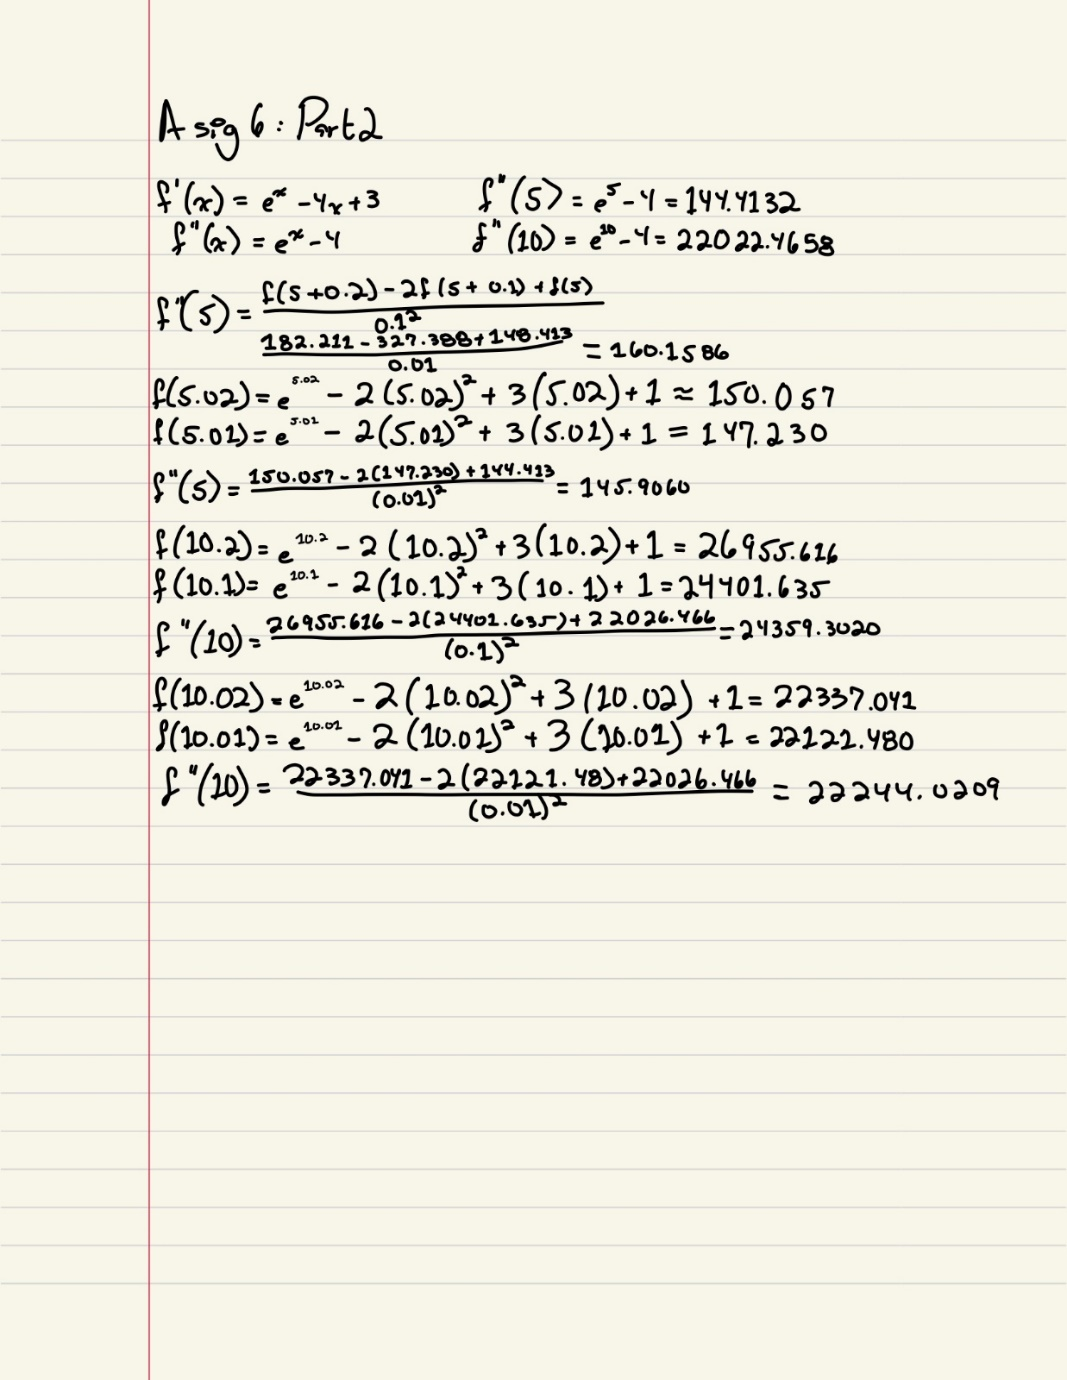 Asig 6: Part 2
f'(x) = eˣ - 4x + 3 f"(5) = e⁵ - 4 = 144.4132
f"(x) = eˣ - 4 f"(10) = e¹⁰ - 4 = 22022.4658
f"(5) = f(5+0.2) - 2f(5+0.1) + f(5) / 0.1²
182.211 - 327.388 + 148.413 / 0.01 = 160.1586
f(5.02) = e^5.02 - 2(5.02)² + 3(5.02) + 1 ≈ 150.057
f(5.01) = e^5.01 - 2(5.01)² + 3(5.01) + 1 = 147.230
f"(5) = 150.057 - 2(147.230) + 144.413 / (0.01)² = 145.9060
f(10.2) = e^10.2 - 2(10.2)² + 3(10.2) + 1 = 26955.616
f(10.1) = e^10.1 - 2(10.1)² + 3(10.1) + 1 = 24401.635
f"(10) = 26955.616 - 2(24401.635) + 22026.466 / (0.1)² = 24359.3020
f(10.02) = e^10.02 - 2(10.02)² + 3(10.02) + 1 = 22337.041
f(10.01) = e^10.01 - 2(10.01)² + 3(10.01) + 1 = 22121.480
f"(10) = 22337.041 - 2(22121.48) + 22026.466 / (0.01)² = 22244.0209